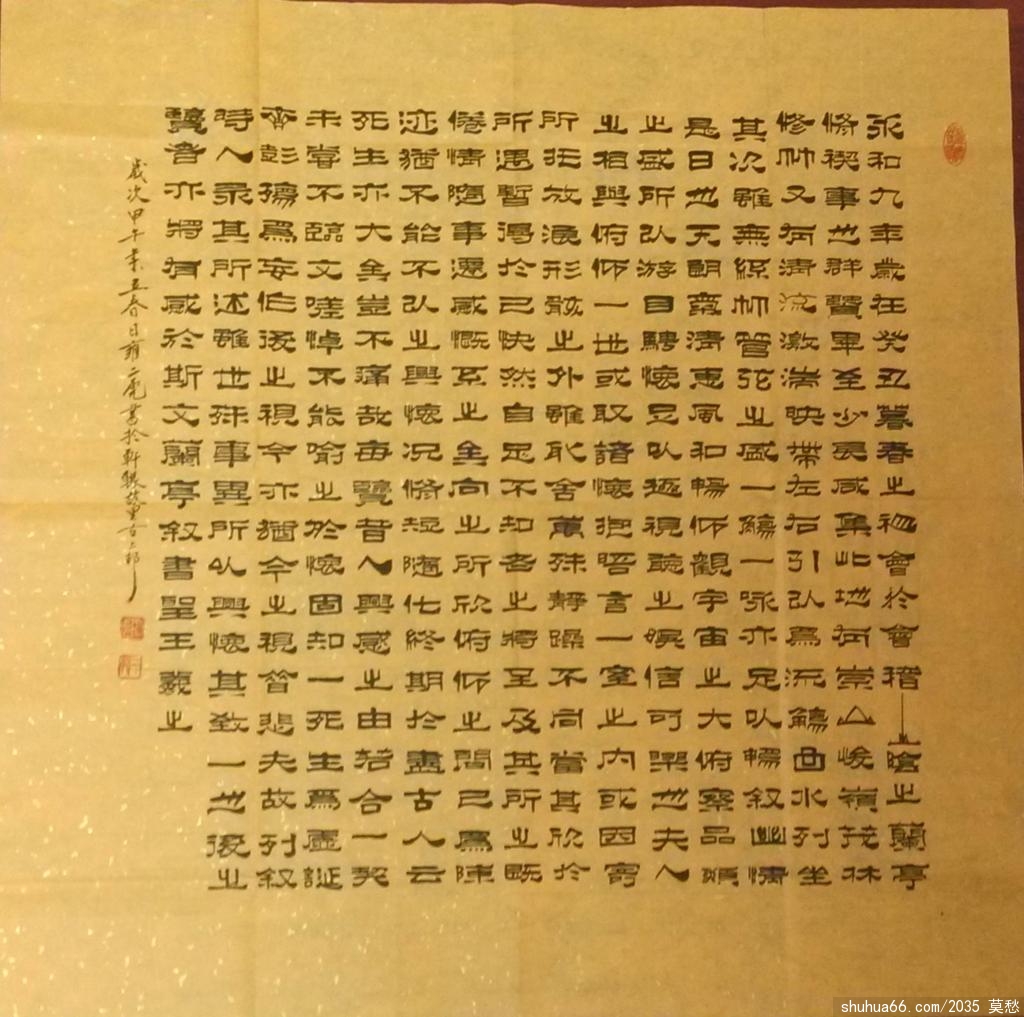 永和九年歲在癸丑暮春之初會於會稽山陰之蘭亭
脩禊事也群賢畢至少長咸集此地有崇山峻嶺茂林
修竹又有清流激湍映帶左右引以爲流觴曲水列坐
其次雖無絲竹管弦之盛一觴一詠亦足以暢叙幽情
是日也天朗氣清惠風和暢仰觀宇宙之大俯察品類
之盛所以游目騁懷足以極視聽之娛信可樂也夫人
之相與俯仰一世或取諸懷抱晤言一室之內或因寄
所托放浪形骸之外雖取舍萬殊靜躁不同當其欣於
所遇暫得於己快然自足不知老之將至及其所之既
倦情隨事遷感慨系之矣向之所欣俯仰之間已爲陳
迹猶不能不以之興懷況脩短隨化終期於盡古人云
死生亦大矣豈不痛哉每覽昔人興感之由若合一契
未嘗不臨文嗟悼不能喻之於懷固知一死生爲虛誕
齊彭殤爲妄作後之視今亦猶今之視昔悲夫故列叙
時人录其所述雖世殊事異所以興懷其致一也後之
覽者亦將有感於斯文蘭亭叙書聖王羲之
歲次甲午春日書於軒
shuhua66.com/2035 莫愁